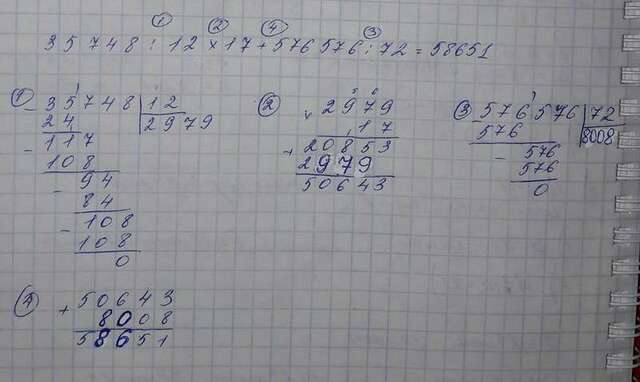 ① ② ④ ③
35748 : 12 × 17 + 576576 : 72 = 58651
①
- 35748 | 12
24 | 2979
- 117
108
- 94
84
- 108
108
0
②
× 2979
17
+ 20853
2979
50643
③
576576 | 72
576 | 8008
- 576
576
0
④
+ 50643
8008
58651